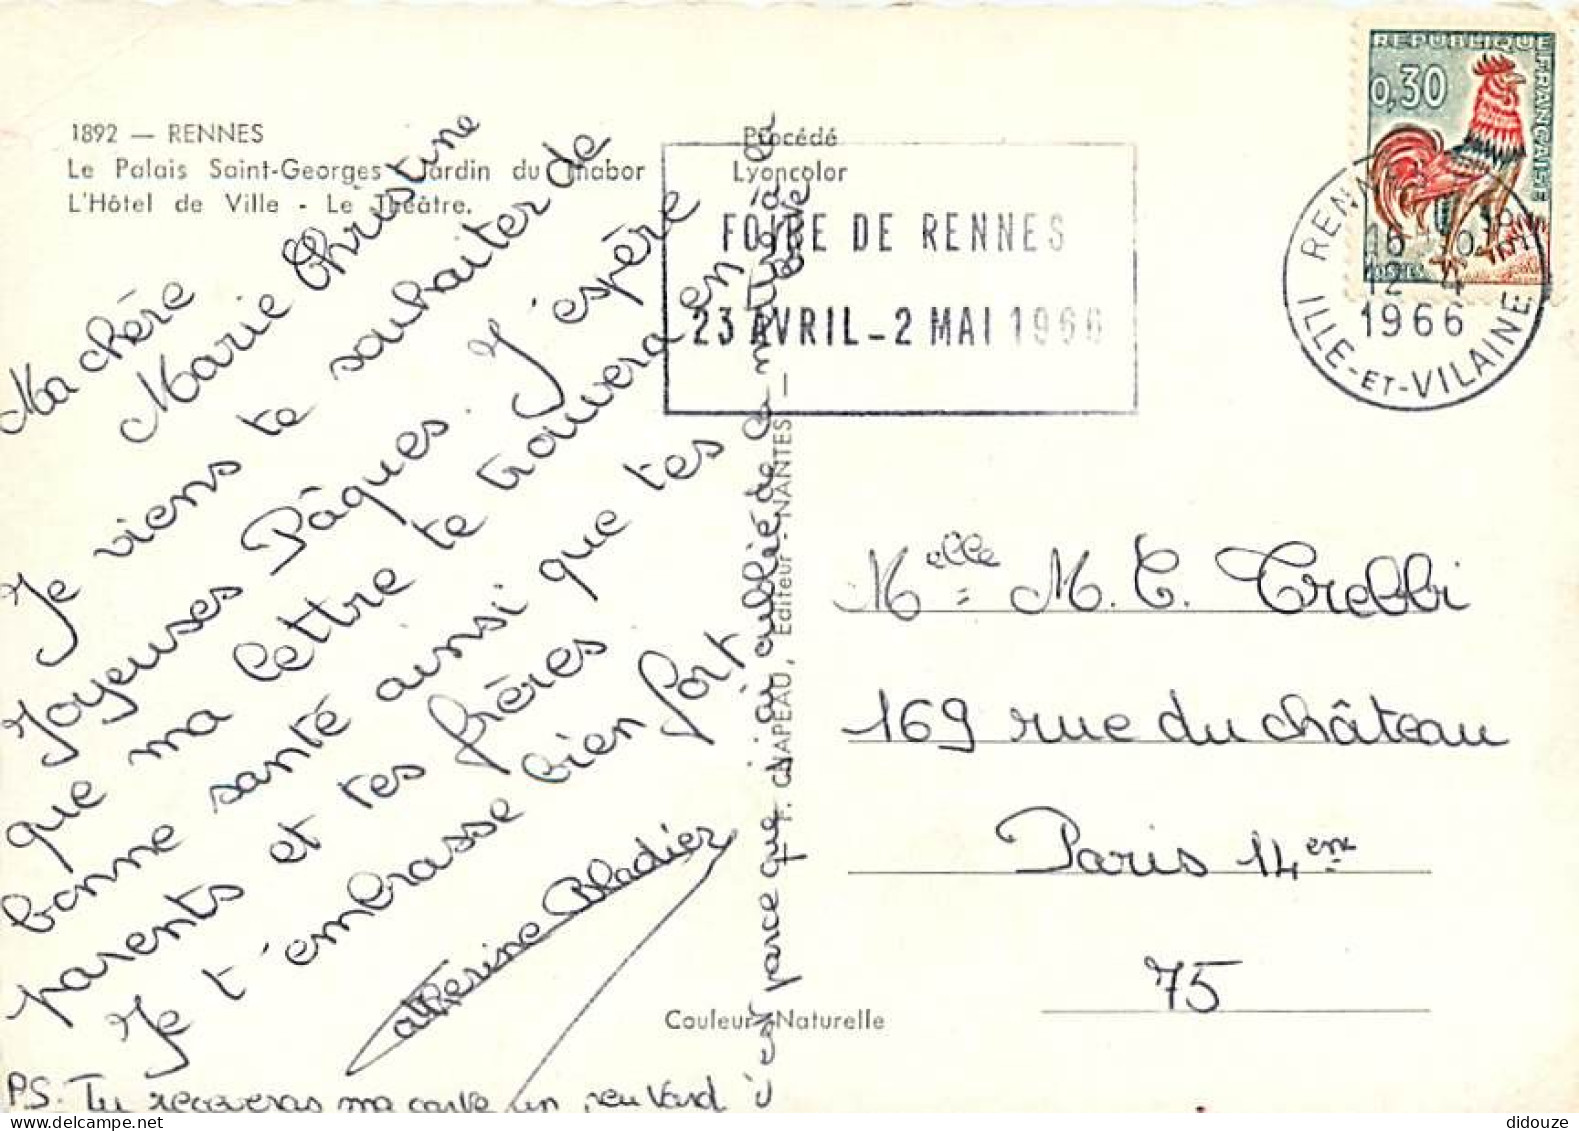 1892 — RENNES
Le Palais Saint-Georges - Jardin du Thabor
L'Hôtel de Ville - Le Théâtre.
Procédé
Lyoncolor
FOIRE DE RENNES
23 AVRIL - 2 MAI 1966
REPUBLIQUE FRANÇAISE
0,30
POSTES
RENNES
12 - 4
1966
ILLE-ET-VILAINE
Ma chère
Marie Christine
Je viens te souhaiter de
Joyeuses Pâques. J'espère
que ma lettre te trouvera en
bonne santé ainsi que tes
parents et tes frères.
Je t'embrasse bien fort
Catherine Bladier
PS. Tu recevras ma carte un peu tard
c'est parce que j'ai oublié de la mettre à la
F. CHAPEAU, Editeur - NANTES
Couleur Naturelle
Melle M. C. Trebbi
169 rue du château
Paris 14eme
75
didouze